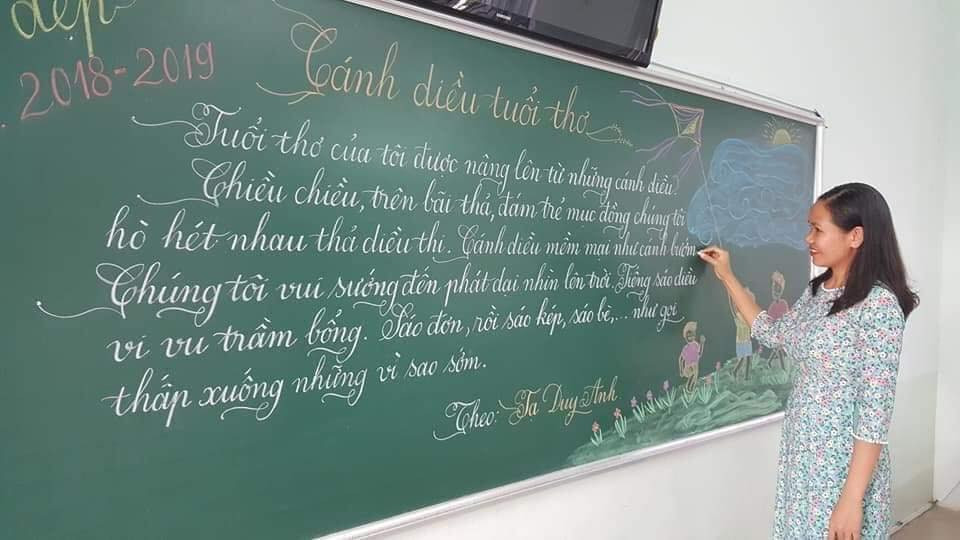 đẹp
2018-2019
SAMSUNG
Cánh diều tuổi thơ
Tuổi thơ của tôi được nâng lên từ những cánh diều.
Chiều chiều, trên bãi thả, đám trẻ mục đồng chúng tôi
hò hét nhau thả diều thi. Cánh diều mềm mại như cánh bướm.
Chúng tôi vui sướng đến phát dại nhìn lên trời. Tiếng sáo diều
vi vu trầm bổng. Sáo đơn, rồi sáo kép, sáo bè,... như gọi
thấp xuống những vì sao sớm.
Theo: Tạ Duy Anh